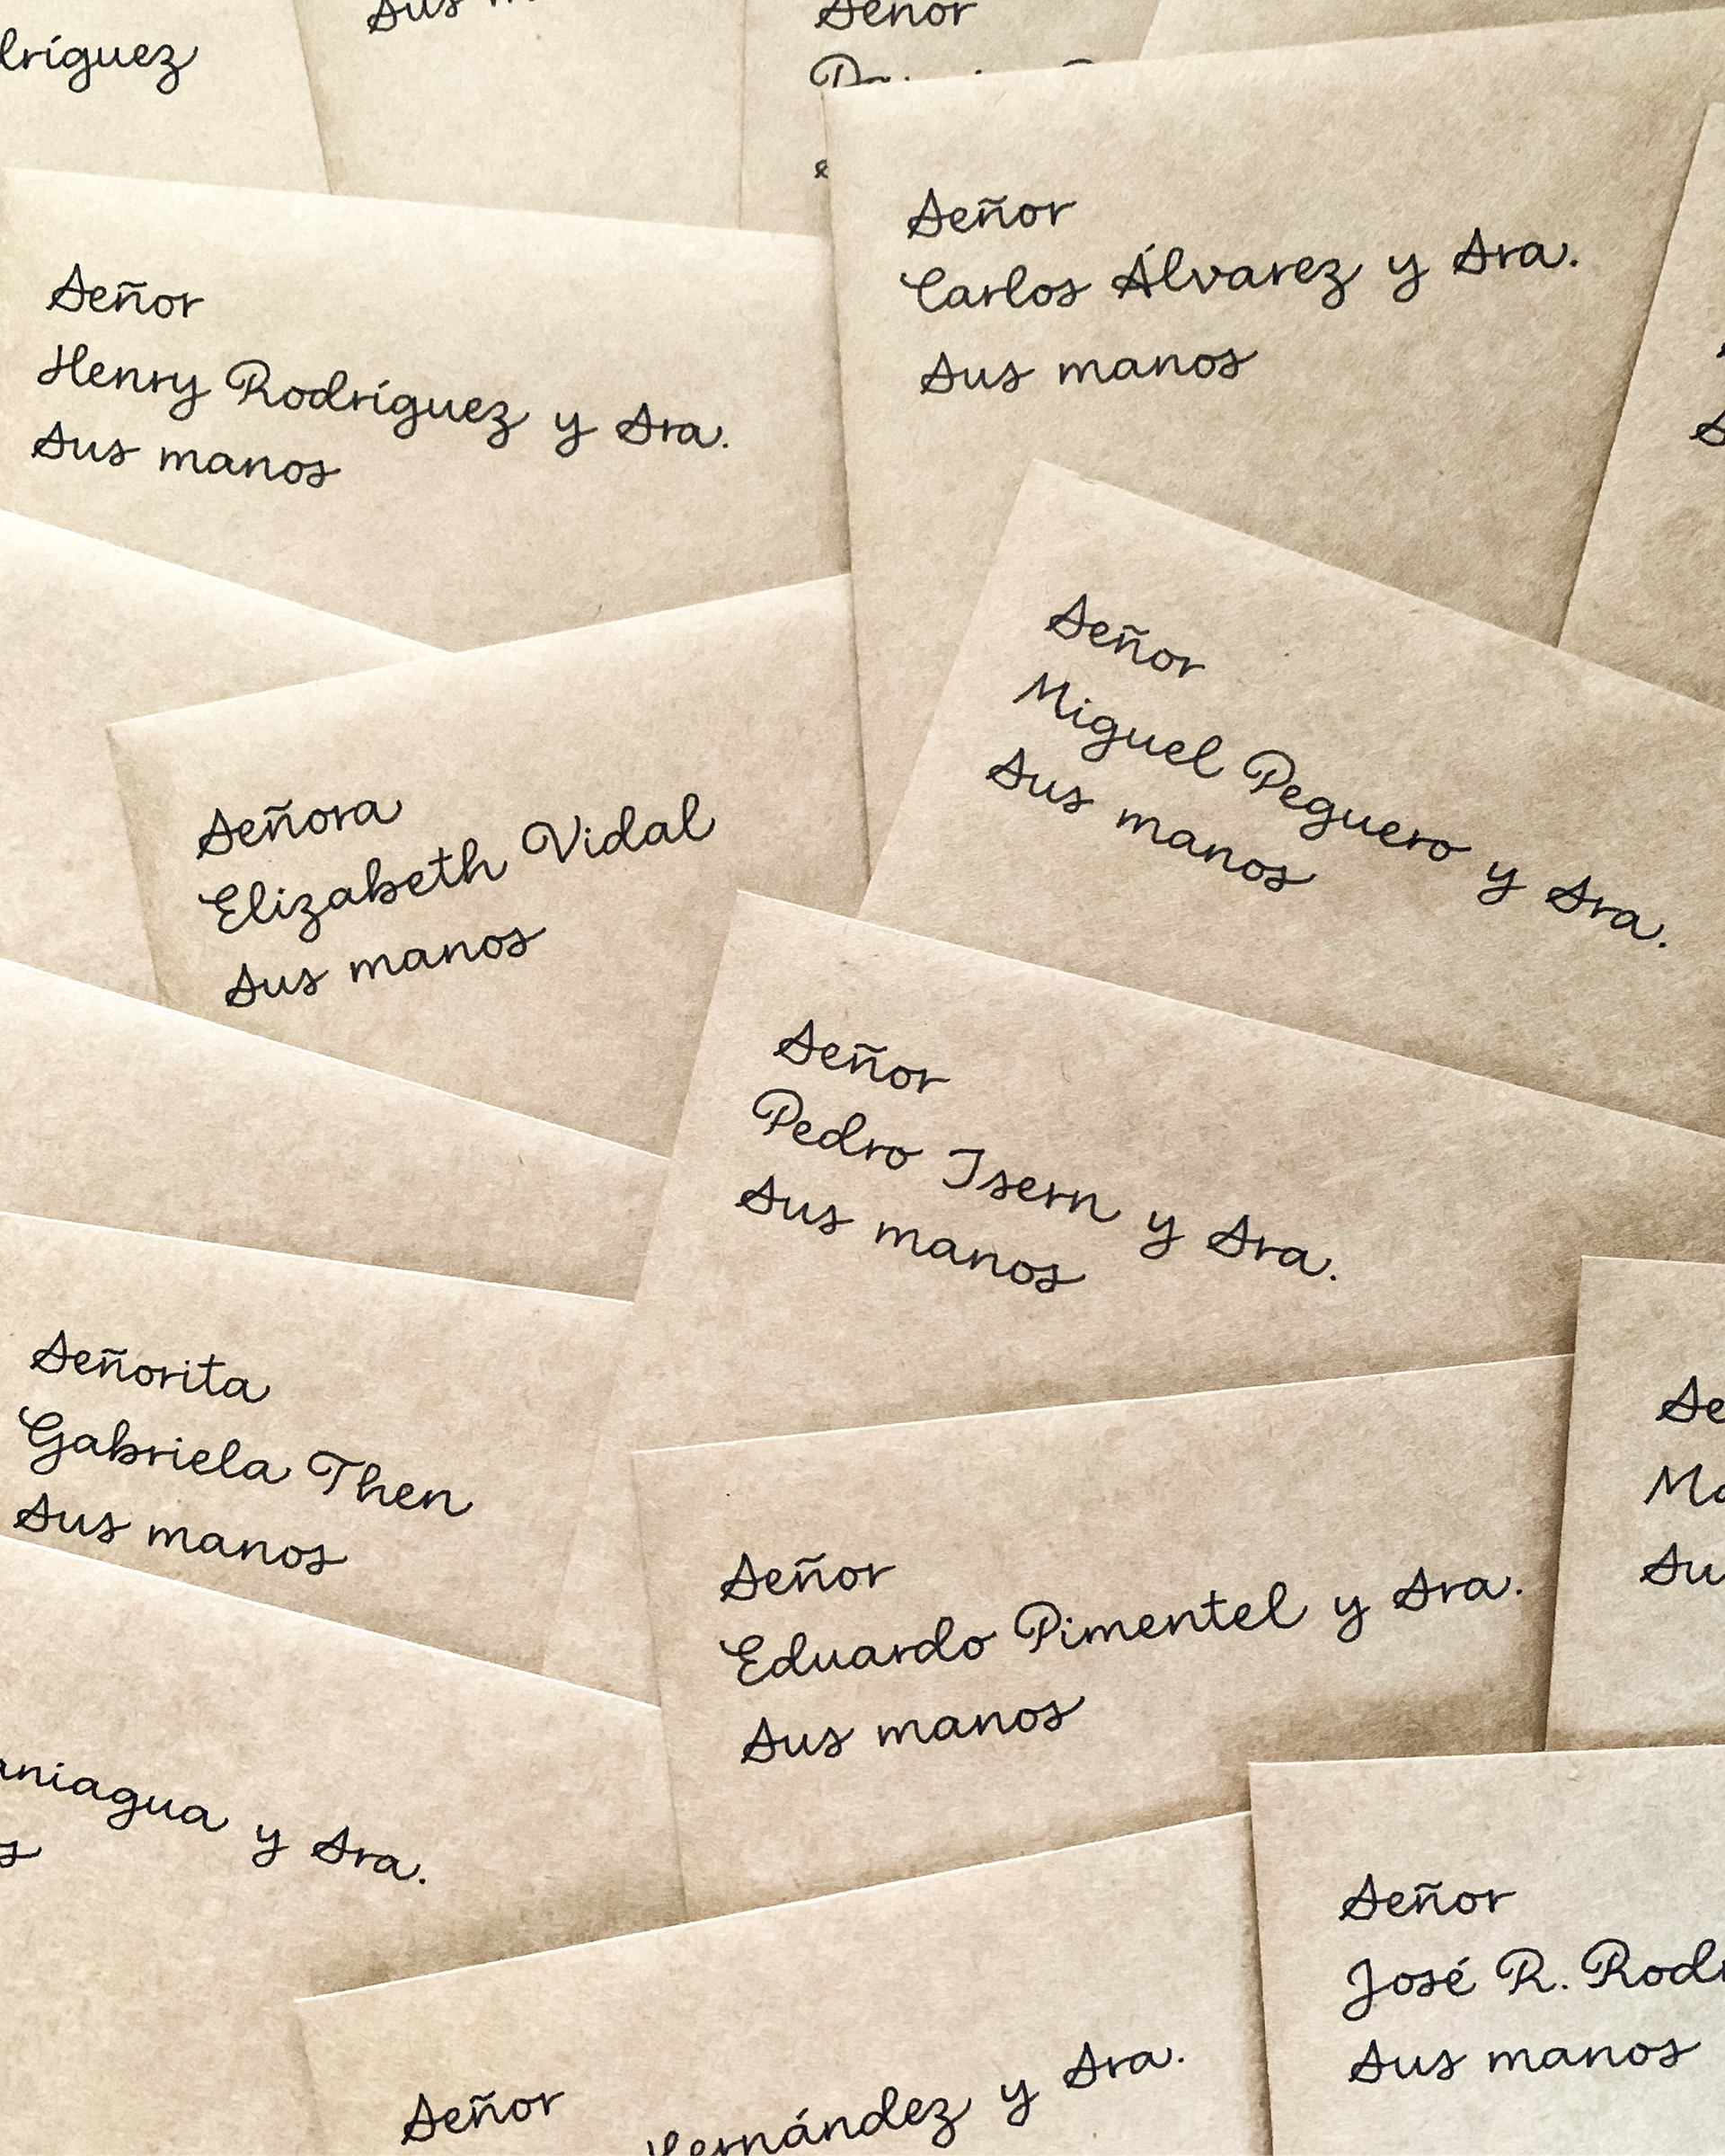 Sus
Señor
Señor
Carlos Álvarez y Sra.
Sus manos
Señor
Henry Rodríguez y Sra.
Sus manos
Señor
Miguel Peguero y Sra.
Sus manos
Señora
Elizabeth Vidal
Sus manos
Señor
Pedro Isern y Sra.
Sus manos
Señorita
Gabriela Then
Sus manos
Señor
Eduardo Pimentel y Sra.
Sus manos
y Sra.
Señor
José R.
Sus manos
Señor
Hernández y Sra.